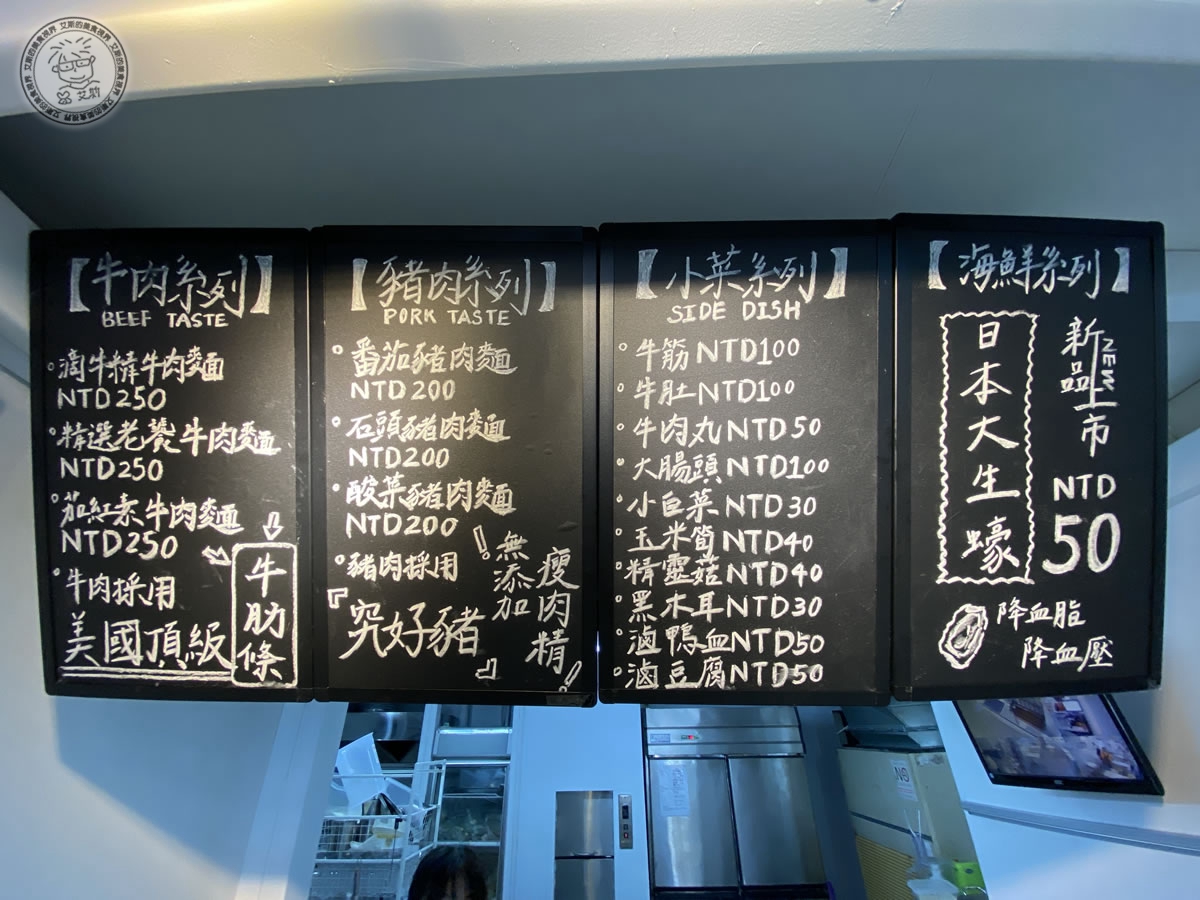 艾斯的美食視界 艾斯的美食視界 艾斯的美食視界
【牛肉系列】
BEEF TASTE
滴牛精牛肉麵
NTD250
精選老饕牛肉麵
NTD250
茄紅素牛肉麵
NTD250
牛肉採用
美國頂級
牛肋條
【豬肉系列】
PORK TASTE
番茄豬肉麵
NTD200
石頭豬肉麵
NTD200
酸菜豬肉麵
NTD200
豬肉採用
『究好豬』
!無添加
瘦肉精!
【小菜系列】
SIDE DISH
牛筋NTD100
牛肚NTD100
牛肉丸NTD50
大腸頭NTD100
小白菜NTD30
玉米筍NTD40
精靈菇NTD40
黑木耳NTD30
滷鴨血NTD50
滷豆腐NTD50
【海鮮系列】
日本大生蠔
新品上市
NEW
NTD
50
降血脂
降血壓